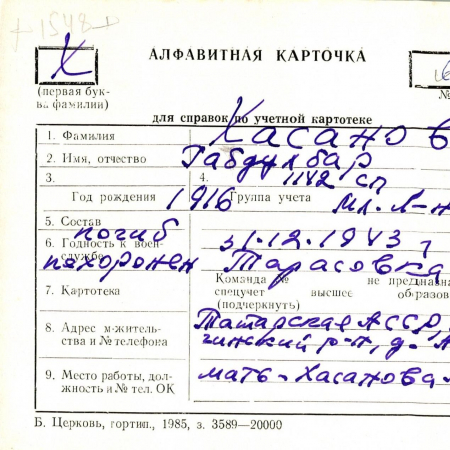 1548
Х
АЛФАВИТНАЯ КАРТОЧКА
(первая бук-
ва фамилии)
№
для справок по учетной картотеке
1. Фамилия Хасанов
2. Имя, отчество Габдулбар
3. 4. 1142 сп
Год рождения 1916 Группа учета Мл. л-н
5. Состав погиб
6. Годность к воен- 31.12.1943 г
службе похоронен Тарасовка
Команда № не предназна
7. Картотека спецучет высшее образов
(подчеркнуть)
8. Адрес м-житель- Татарская АССР,
ства и № телефона чинский р-н, д.
9. Место работы, дол- мать - Хасанова
жность и № тел. ОК
Б. Церковь, гортип., 1985, з. 3589—20000